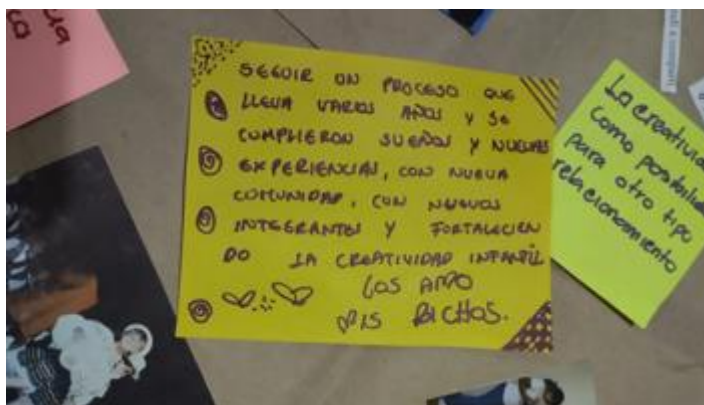 SEGUIR UN PROCESO QUE
LLEVA VARIOS AÑOS Y SE
CUMPLIERON SUEÑOS Y NUEVAS
EXPERIENCIAS, CON NUEVA
COMUNIDAD, CON NUEVOS
INTEGRANTES Y FORTALECIEN
DO LA CREATIVIDAD INFANTIL
LOS AMO
MIS BICHOS.
La creativida
como posibilid
para otro tipo
relacionamiento